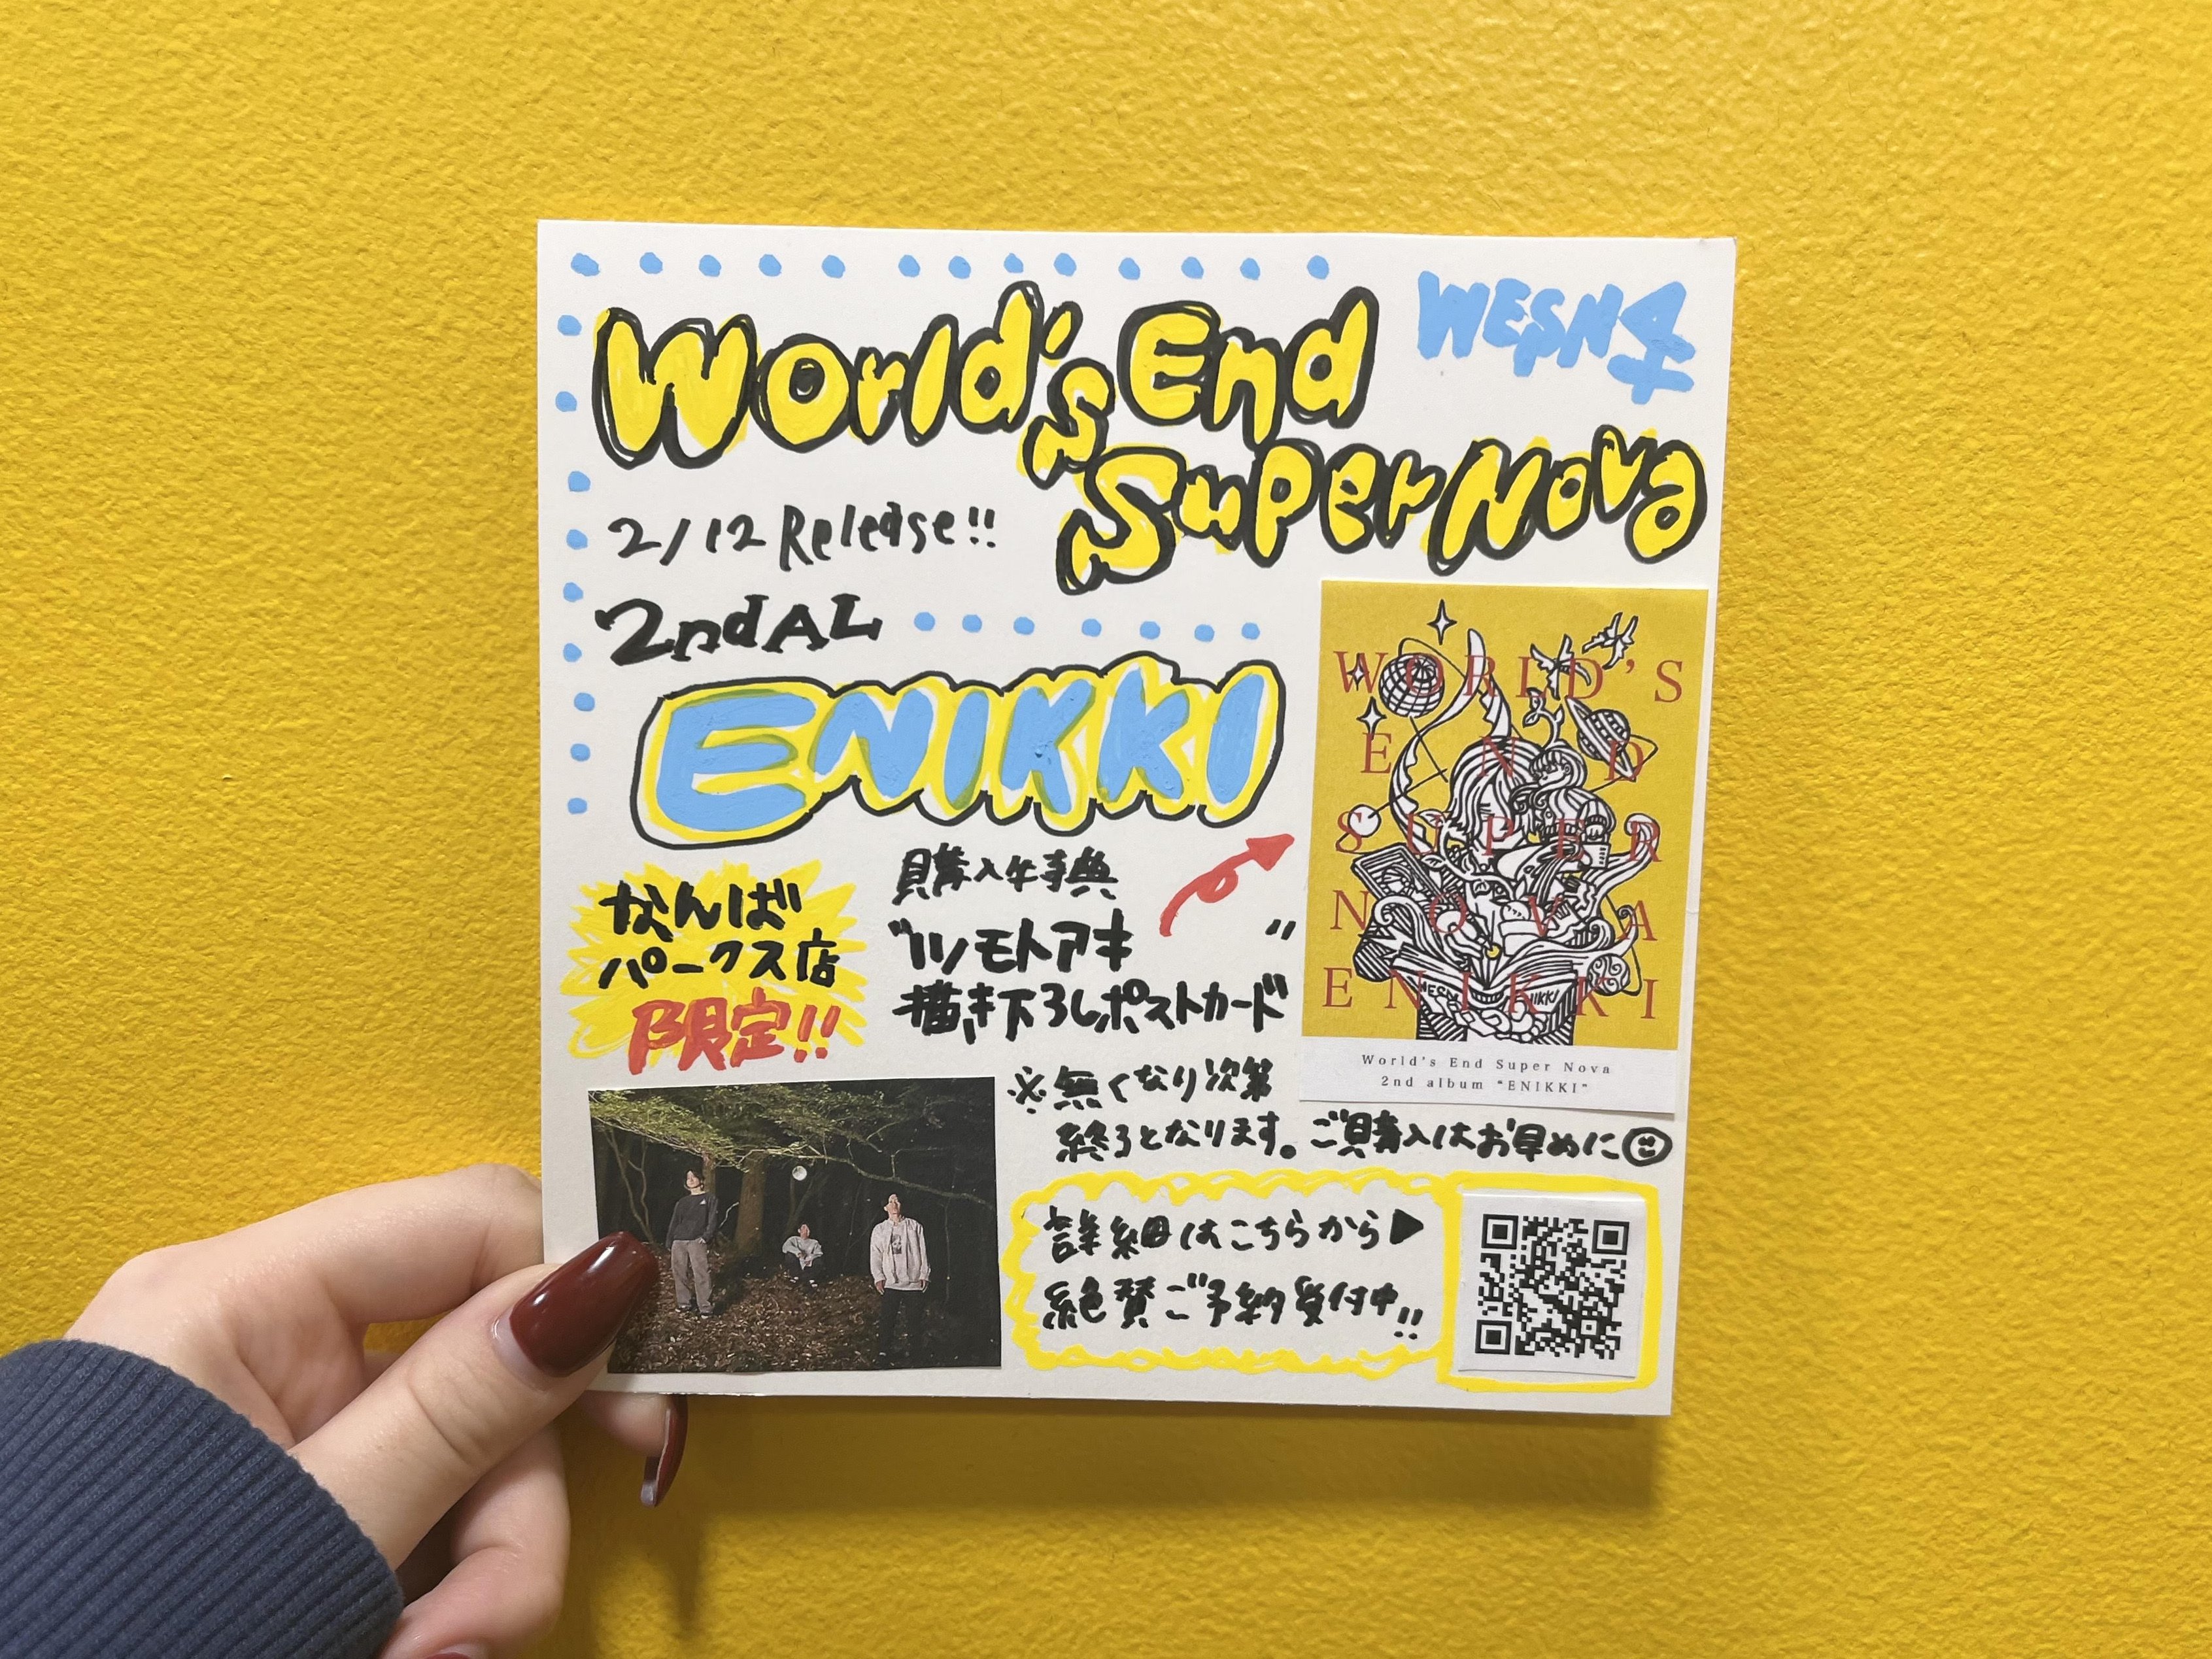 World's End
WESN
Super Nova
2/12 Release!!
2nd AL
ENIKKI
なんば
パークス店
限定!!
購入特典
"ツモトアキ"
描き下ろしポストカード
※無くなり次第
終了となります。ご購入はお早めに
WORLD'S
END
SUPER
NOVA
ENIKKI
World's End Super Nova
2nd album "ENIKKI"
詳細はこちらから▶
絶賛ご予約受付中!!